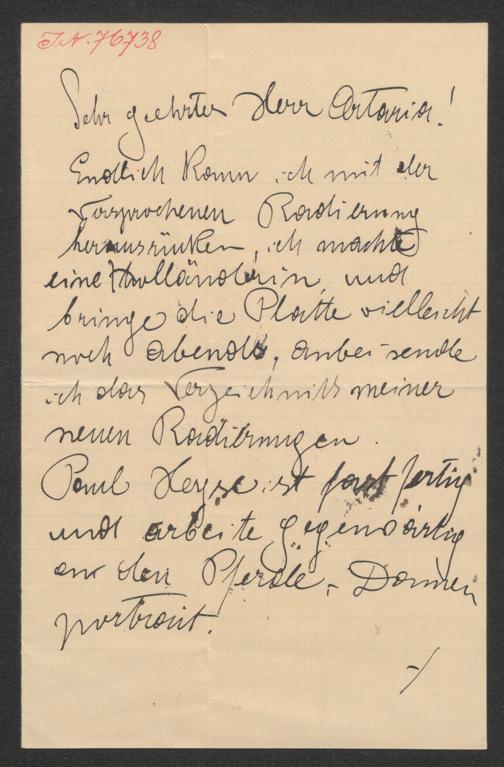 I.N. 76738
Sehr geehrter Herr Artaria!
Endlich kann ich mit der
versprochenen Radierung
herausrücken, ich machte
eine Holländerin, und
bringe die Platte vielleicht
noch abends, anbei sende
ich das Verzeichniss meiner
neuen Radierungen.
Paul Heyse ist fast fertig
und arbeite gegenwärtig
an den Pferde, Damen
portrait.